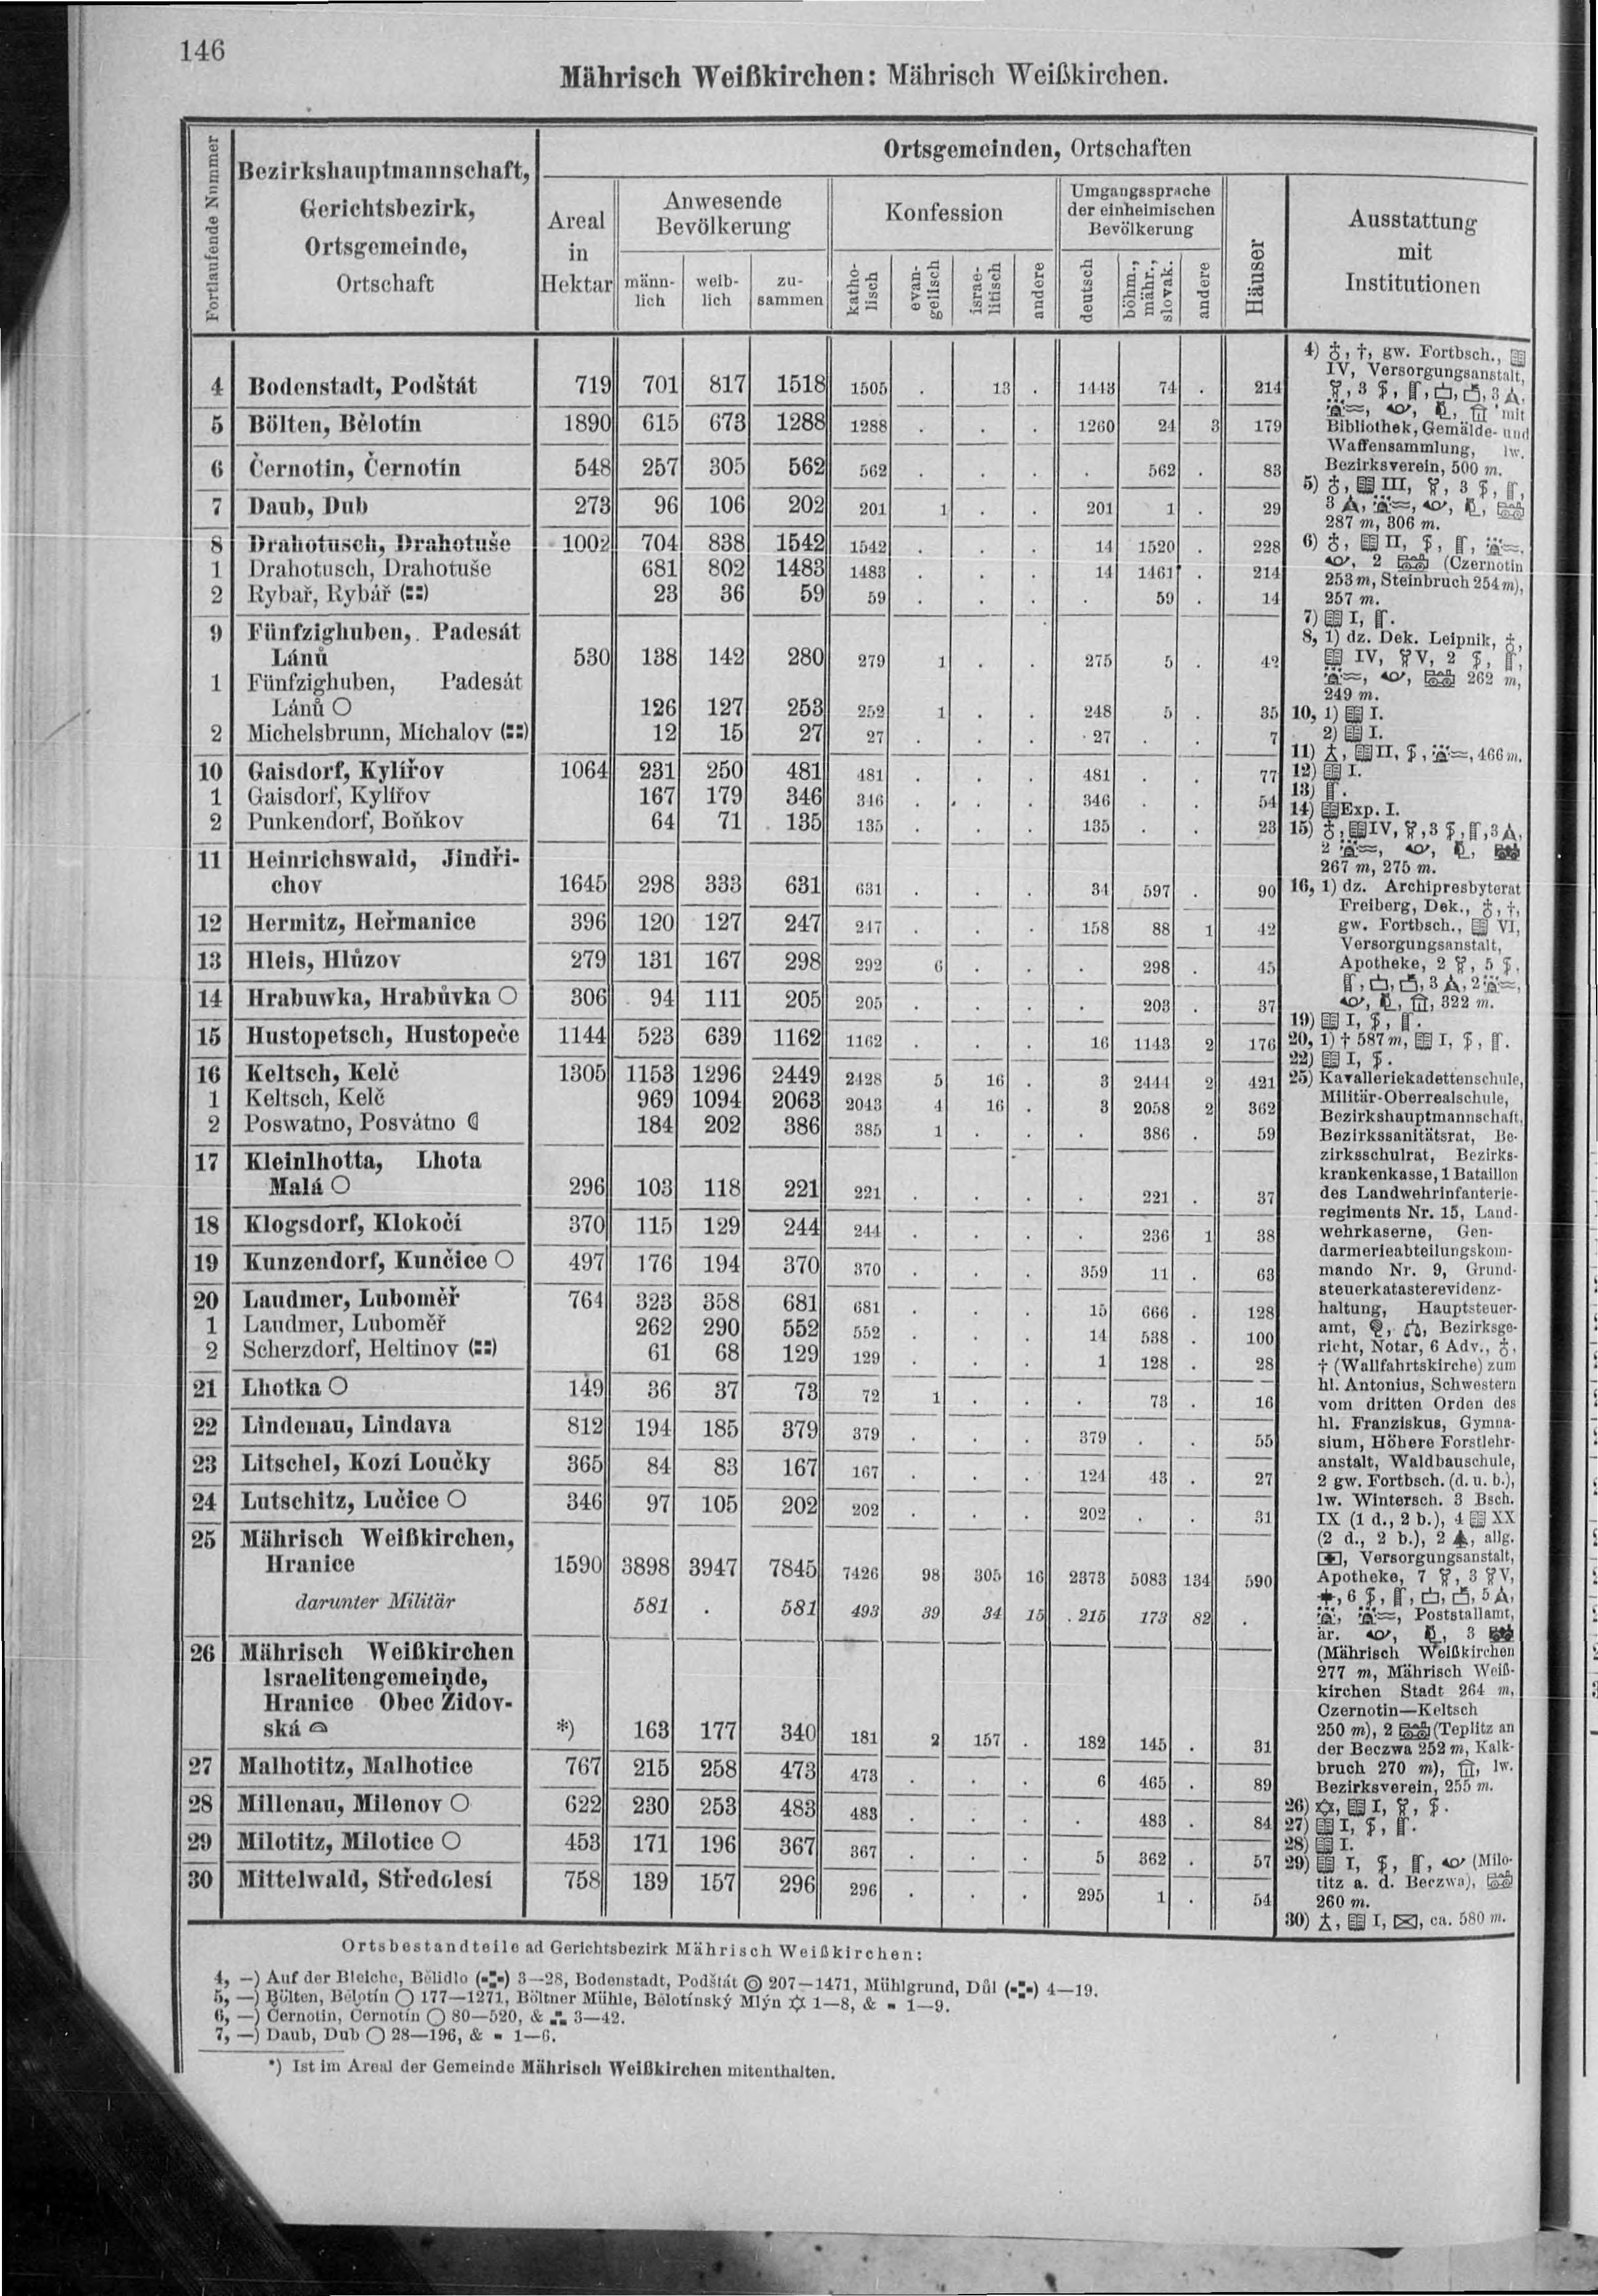 146
Mährisch Weißkirchen: Mährisch Weißkirchen.
Fortlaufende Nummer
Bezirkshauptmannschaft,
Gerichtsbezirk,
Ortsgemeinde,
Ortschaft
Ortsgemeinden, Ortschaften
Areal in Hektar
Anwesende Bevölkerung
männlich weiblich zusammen
Konfession
katholisch evangelisch israelitisch andere
Umgangssprache der einheimischen Bevölkerung
deutsch böhm., mähr., slovak. andere
Häuser
Ausstattung mit Institutionen
4 Bodenstadt, Podštát 719 701 817 1518 1505 . 13 . 1443 74 . 214
5 Bölten, Bělotín 1890 615 673 1288 1288 . . . 1260 24 3 179
6 Černotin, Černotín 548 257 305 562 562 . . . . 562 . 83
7 Daub, Dub 273 96 106 202 201 1 . . 201 1 . 29
8 Drahotusch, Drahotuše 1002 704 838 1542 1542 . . . 14 1520 . 228
1 Drahotusch, Drahotuše 681 802 1483 1483 . . . 14 1461 . 214
2 Rybař, Rybář (::) 23 36 59 59 . . . . 59 . 14
9 Fünfzighuben, Padesát
Lánů 530 138 142 280 279 1 . . 275 5 . 42
1 Fünfzighuben, Padesát
Lánů ○ 126 127 253 252 1 . . 248 5 . 35
2 Michelsbrunn, Michalov (::) 12 15 27 27 . . . 27 . . 7
10 Gaisdorf, Kylířov 1064 231 250 481 481 . . . 481 . . 77
1 Gaisdorf, Kylířov 167 179 346 346 . . . 346 . . 54
2 Punkendorf, Boňkov 64 71 135 135 . . . 135 . . 23
11 Heinrichswald, Jindři-
chov 1645 298 333 631 631 . . . 34 597 . 90
12 Hermitz, Heřmanice 396 120 127 247 247 . . . 158 88 1 42
13 Hleis, Hlůzov 279 131 167 298 292 6 . . . 298 . 45
14 Hrabuwka, Hrabůvka ○ 306 94 111 205 205 . . . . 203 . 37
15 Hustopetsch, Hustopeče 1144 523 639 1162 1162 . . . 16 1143 2 176
16 Keltsch, Kelč 1305 1153 1296 2449 2428 5 16 . 3 2444 2 421
1 Keltsch, Kelč 969 1094 2063 2043 4 16 . 3 2058 2 362
2 Poswatno, Posvátno 184 202 386 385 1 . . . 386 . 59
17 Kleinlhotta, Lhota
Malá ○ 296 103 118 221 221 . . . . 221 . 37
18 Klogsdorf, Klokočí 370 115 129 244 244 . . . . 236 1 38
19 Kunzendorf, Kunčice ○ 497 176 194 370 370 . . . 359 11 . 63
20 Laudmer, Luboměř 764 323 358 681 681 . . . 15 666 . 128
1 Laudmer, Luboměř 262 290 552 552 . . . 14 538 . 100
2 Scherzdorf, Heltinov (::) 61 68 129 129 . . . 1 128 . 28
21 Lhotka ○ 149 36 37 73 72 1 . . . 73 . 16
22 Lindenau, Lindava 812 194 185 379 379 . . . 379 . . 55
23 Litschel, Kozí Loučky 365 84 83 167 167 . . . 124 43 . 27
24 Lutschitz, Lučice ○ 346 97 105 202 202 . . . 202 . . 31
25 Mährisch Weißkirchen,
Hranice 1590 3898 3947 7845 7426 98 305 16 2373 5083 134 590
darunter Militär 581 . 581 493 39 34 15 215 173 82 .
26 Mährisch Weißkirchen
Israelitengemeinde,
Hranice Obec Židov-
ská *) 163 177 340 181 2 157 . 182 145 . 31
27 Malhotitz, Malhotice 767 215 258 473 473 . . . 6 465 . 89
28 Millenau, Milenov ○ 622 230 253 483 483 . . . . 483 . 84
29 Milotitz, Milotice ○ 453 171 196 367 367 . . . 5 362 . 57
30 Mittelwald, Středolesí 758 139 157 296 296 . . . 295 1 . 54
4) , †, gw. Fortbsch.,
IV, Versorgungsanstalt,
, 3 , 3
mit
Bibliothek, Gemälde- und
Waffensammlung, lw.
Bezirksverein, 500 m.
5) III, 3
3
287 m, 306 m.
6) II,
2 (Czernotin
253 m, Steinbruch 254 m),
257 m.
7) I,
8, 1) dz. Dek. Leipnik,
IV, V, 2
262 m,
249 m.
10, 1) I.
2) I.
11) II, 466 m.
12) I.
13)
14) Exp. I.
15) IV, 3 , 3
2
267 m, 275 m.
16, 1) dz. Archipresbyterat
Freiberg, Dek., †,
gw. Fortbsch., VI,
Versorgungsanstalt,
Apotheke, 2 , 5
3 , 2
322 m.
19) I,
20, 1) † 587 m, I,
22) I,
25) Kavalleriekadettenschule,
Militär-Oberrealschule,
Bezirkshauptmannschaft,
Bezirkssanitätsrat, Be-
zirksschulrat, Bezirks-
krankenkasse, 1 Bataillon
des Landwehrinfanterie-
regiments Nr. 15, Land-
wehrkaserne, Gen-
darmerieabteilungskom-
mando Nr. 9, Grund-
steuerkatasterevidenz-
haltung, Hauptsteuer-
amt, Bezirksge-
richt, Notar, 6 Adv.,
† (Wallfahrtskirche) zum
hl. Antonius, Schwestern
vom dritten Orden des
hl. Franziskus, Gymna-
sium, Höhere Forstlehr-
anstalt, Waldbauschule,
2 gw. Fortbsch. (d. u. b.),
lw. Wintersch. 3 Bsch.
IX (1 d., 2 b.), 4 XX
(2 d., 2 b.), 2 , allg.
Versorgungsanstalt,
Apotheke, 7 , 3 V,
6 , 5
Poststallamt,
är. 3
(Mährisch Weißkirchen
277 m, Mährisch Weiß-
kirchen Stadt 264 m,
Czernotin—Keltsch
250 m), 2 (Teplitz an
der Beczwa 252 m, Kalk-
bruch 270 m), lw.
Bezirksverein, 255 m.
26) ✡, I,
27) I,
28) I.
29) I, (Milo-
titz a. d. Beczwa),
260 m.
30) I, ca. 580 m.
Ortsbestandteile ad Gerichtsbezirk Mährisch Weißkirchen:
4, —) Auf der Bleiche, Bělidlo 3—28, Bodenstadt, Podštát ◎ 207—1471, Mühlgrund, Důl 4—19.
5, —) Bölten, Bělotín ○ 177—1271, Böltner Mühle, Bělotínský Mlýn 1—8, & 1—9.
6, —) Černotin, Černotín ○ 80—520, & 3—42.
7, —) Daub, Dub ○ 28—196, & 1—6.
*) Ist im Areal der Gemeinde Mährisch Weißkirchen mitenthalten.